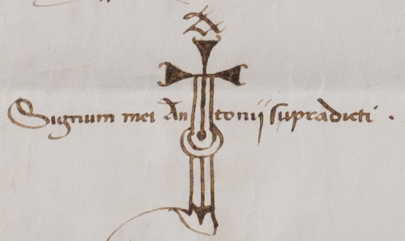 A
Signum mei Antonij supradicti .